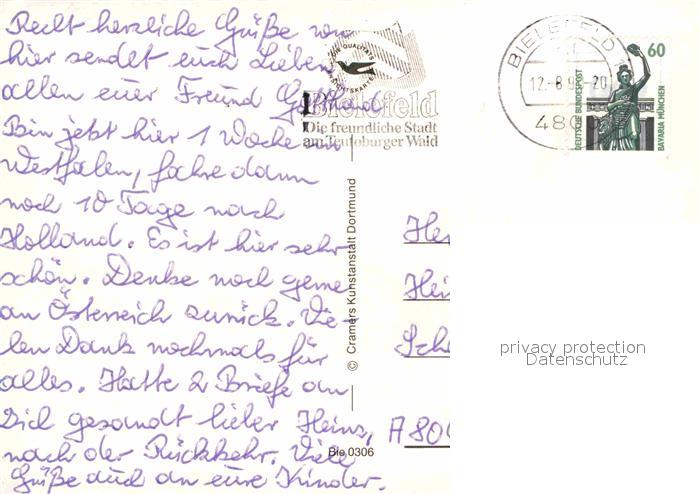 Recht herzliche Grüße von
hier sendet euch Lieben
allen euer Freund Gotthard
Bin jetzt hier 1 Woche in
Westfalen, fahre dann
noch 10 Tage nach
Holland. Es ist hier sehr
schön. Denke noch gerne
an Österreich zurück. Vie-
len Dank nochmals für
alles. Hatte 2 Briefe an
Dich gesandt lieber Heinz,
nach der Rückkehr. Viele
Grüße auch an eure Kinder.
DIE QUALITÄTS
Bielefeld
Die freundliche Stadt
am Teutoburger Wald
© Cramers Kunstanstalt Dortmund
Bie 0306
BIELEFELD
12.-8.9 -20
480
60
DEUTSCHE BUNDESPOST
BAVARIA MÜNCHEN
He
Hei
Sch
A 80
privacy protection
Datenschutz